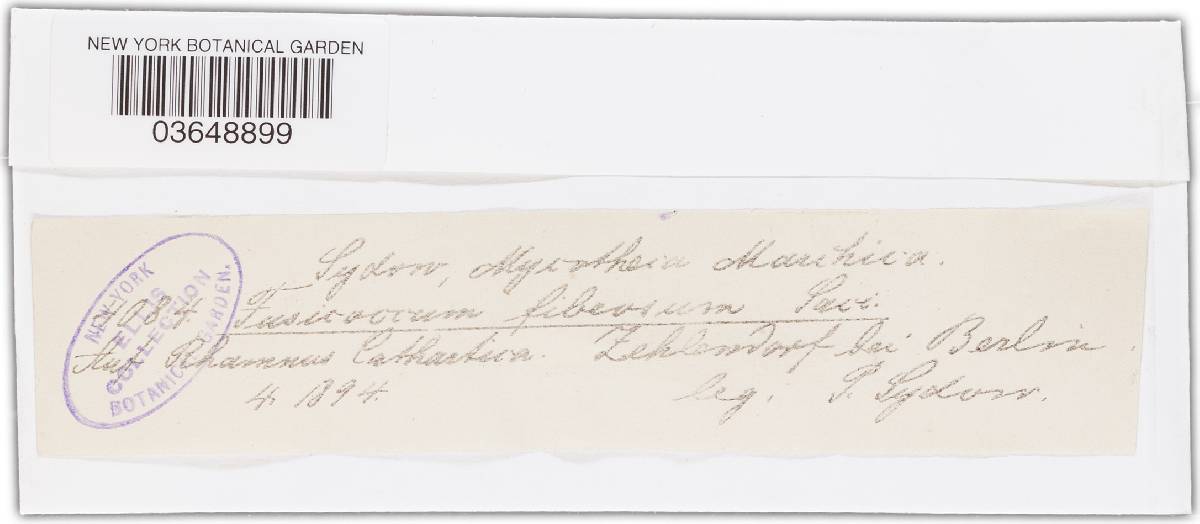 NEW YORK BOTANICAL GARDEN
03648899
NEW-YORK
ELLIS
COLLECTION
BOTANIC GARDEN.
Sydow, Mycotheca Marchica.
Fusicoccum fibrosum Sacc.
Auf Rhamnus Cathartica. Zehlendorf bei Berlin.
4. 1894. leg. P. Sydow.